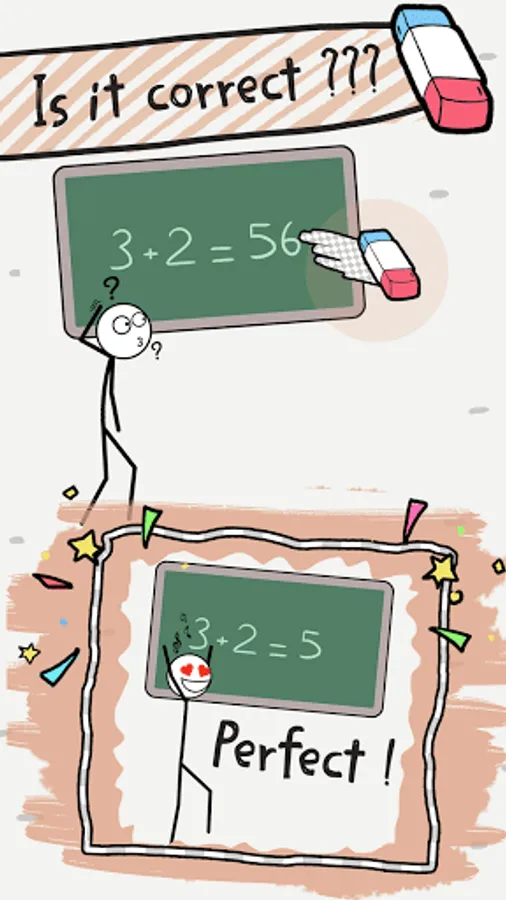 Is it correct ???
3+2=56
?
?
3+2=5
Perfect !